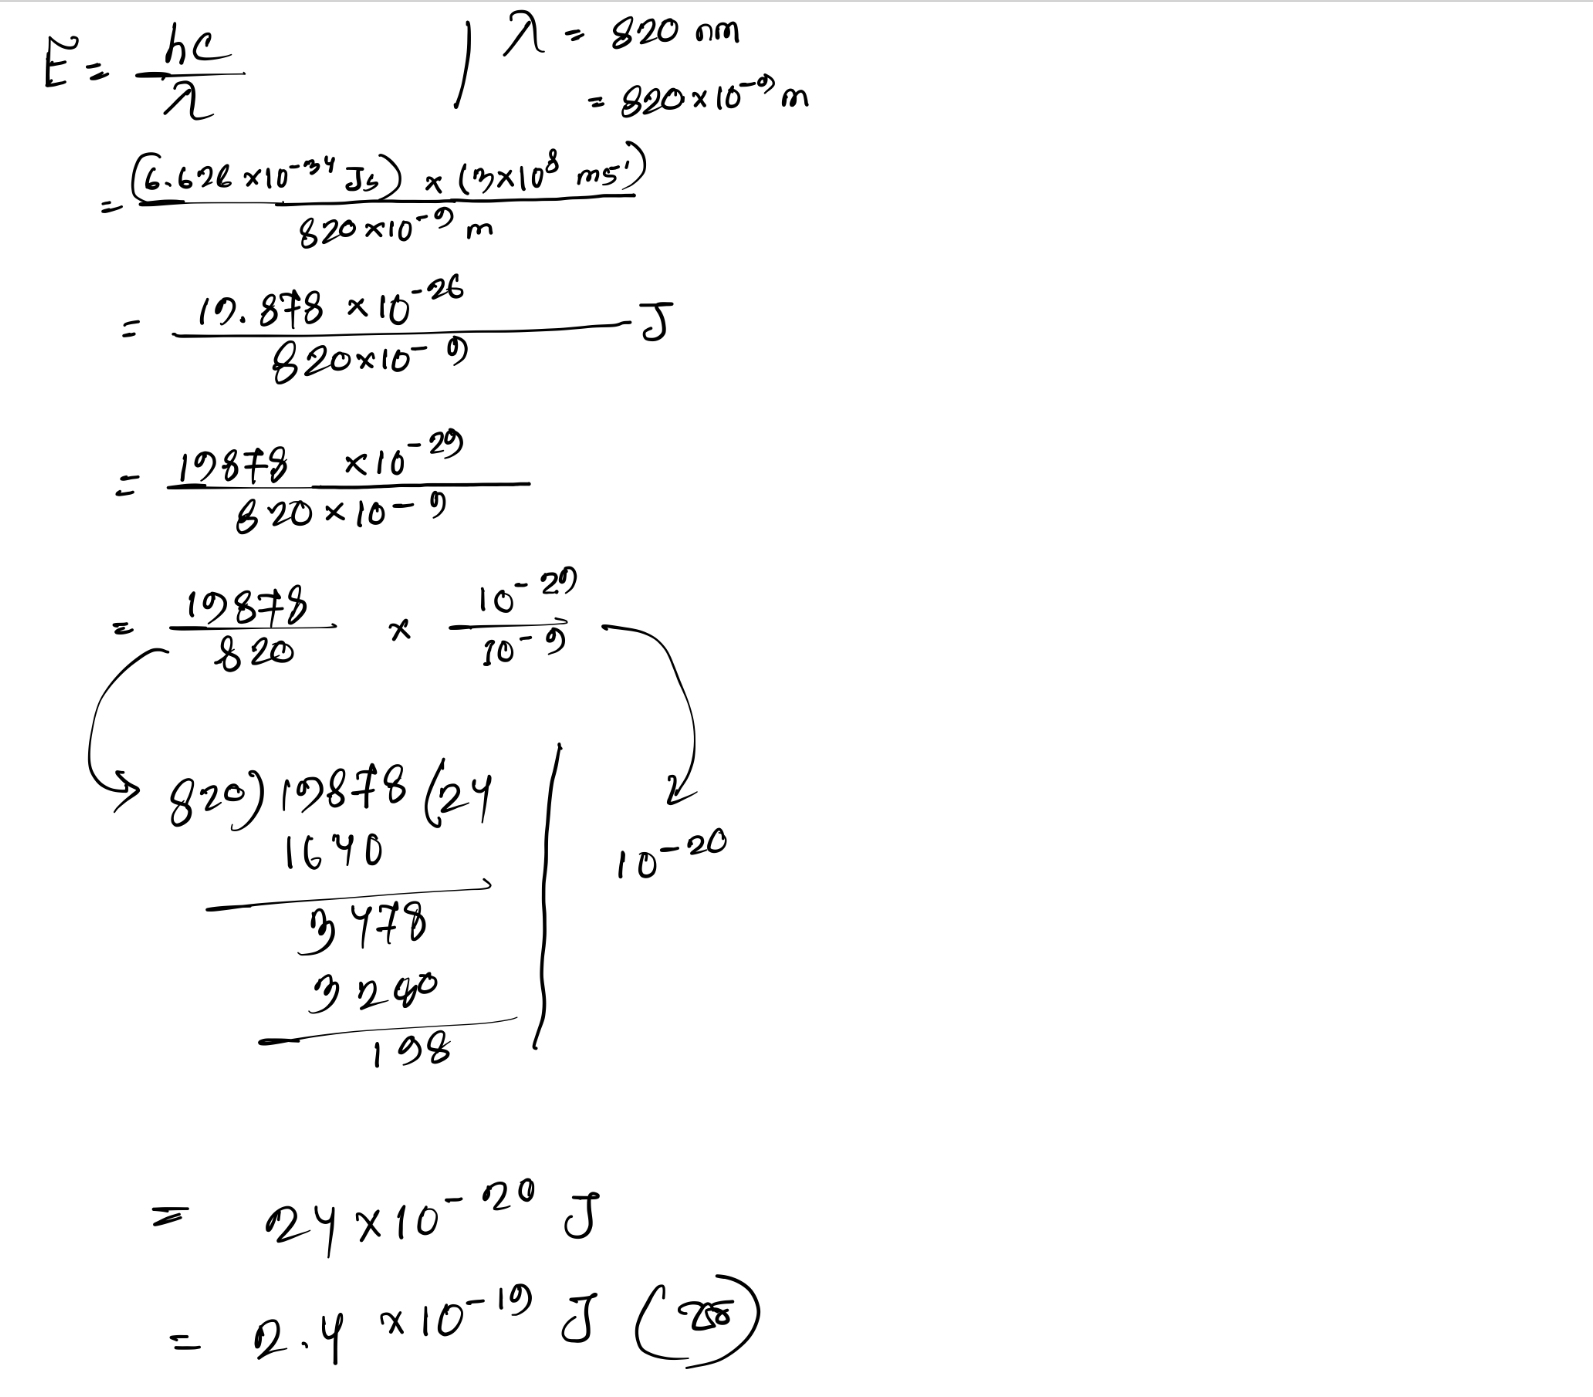 E = hc / λ | λ = 820 nm
= 820 × 10⁻⁹ m
= (6.626 × 10⁻³⁴ Js) × (3 × 10⁸ ms⁻¹) / 820 × 10⁻⁹ m
= 19.878 × 10⁻²⁶ / 820 × 10⁻⁹ J
= 19878 × 10⁻²⁹ / 820 × 10⁻⁹
= 19878 / 820 × 10⁻²⁹ / 10⁻⁹
820) 19878 (24
1640
10⁻²⁰
3478
3280
198
= 24 × 10⁻²⁰ J
= 2.4 × 10⁻¹⁹ J